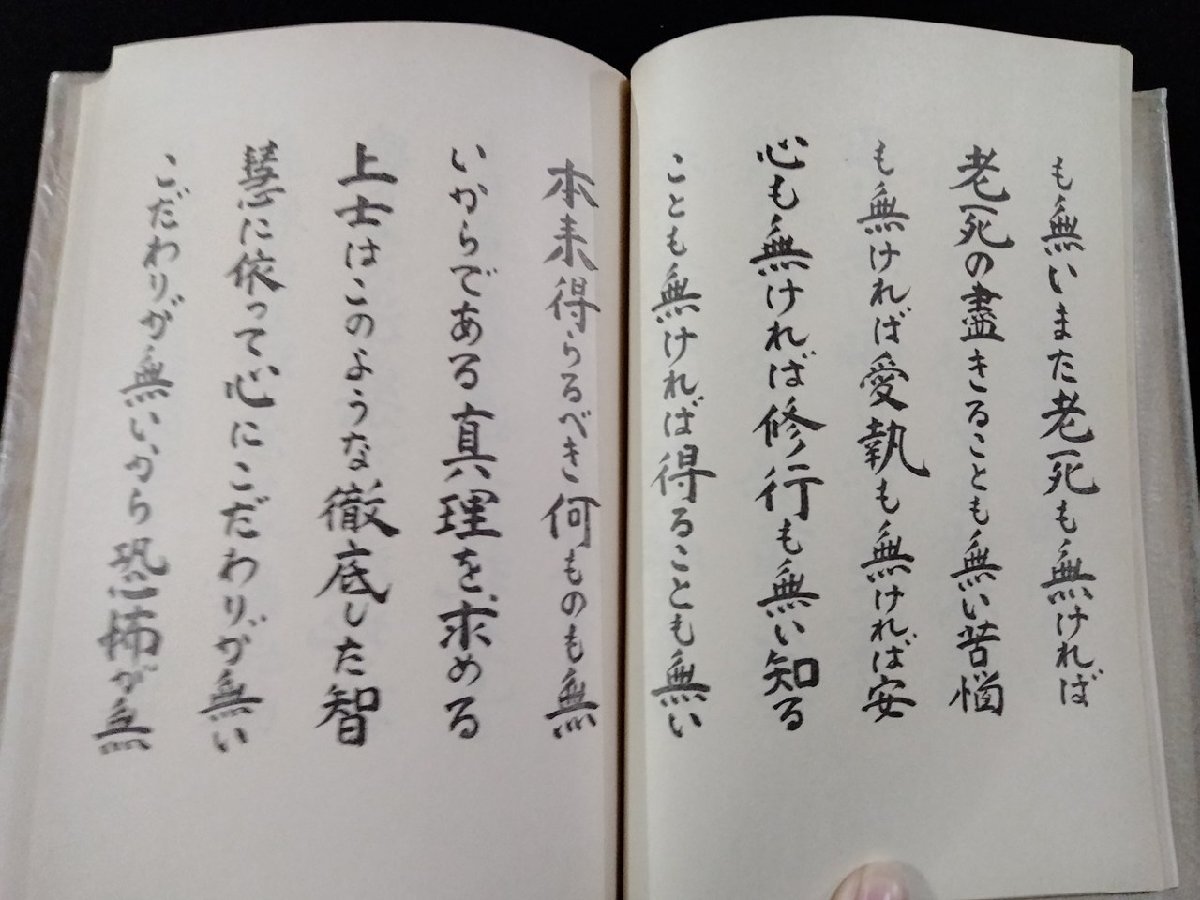 も無いまた老死も無ければ
老死の盡きることも無い苦悩
も無ければ愛執も無ければ安
心も無ければ修行も無い知る
ことも無ければ得ることも無い
本来得らるべき何ものも無
いからである真理を求める
上士はこのような徹底した智
慧に依って心にこだわりが無い
こだわりが無いから恐怖が無